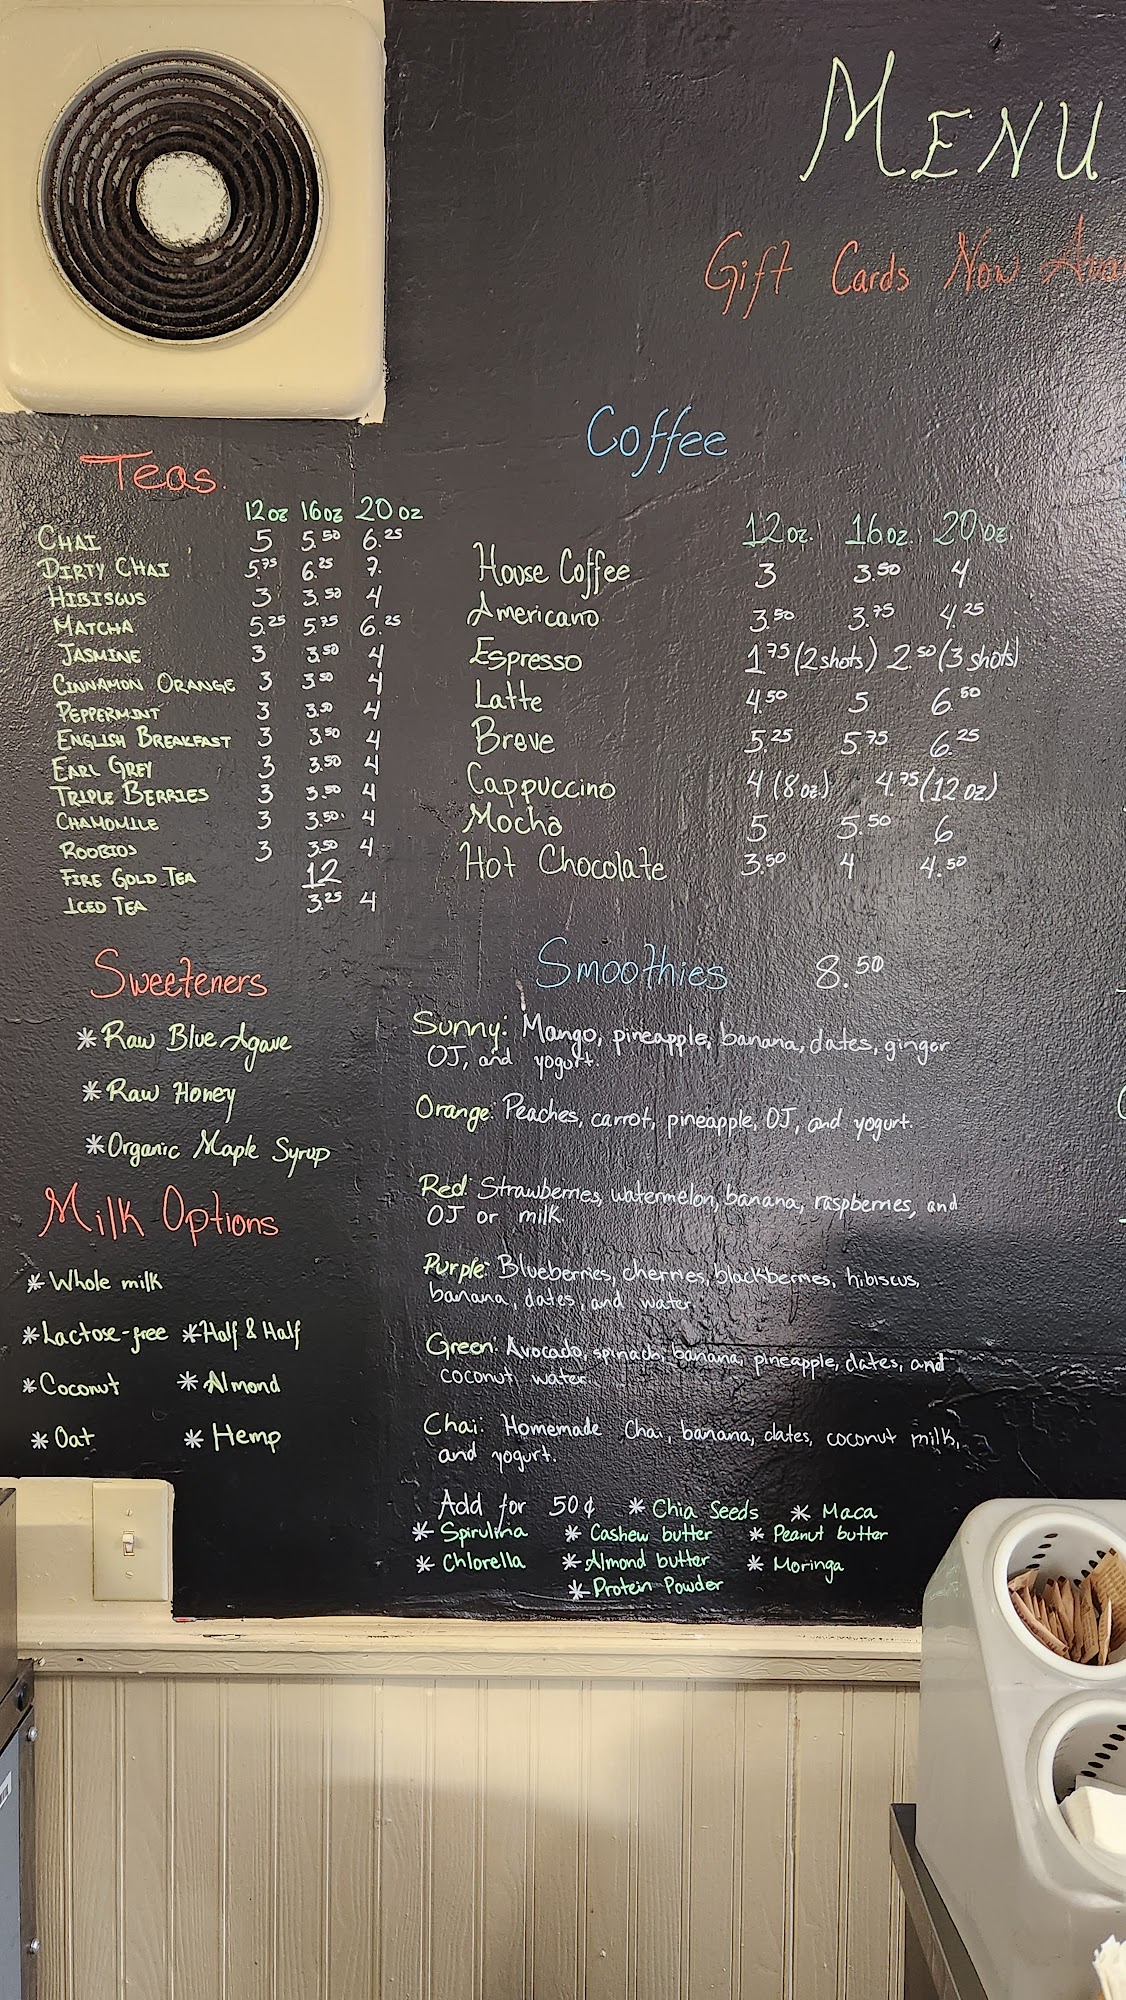 MENU
Gift Cards Now
Teas
12oz 16oz 20oz
CHAI 5 5.50 6.25
DIRTY CHAI 5.75 6.25 7.
HIBISCUS 3 3.50 4
MATCHA 5.25 5.75 6.25
JASMINE 3 3.50 4
CINNAMON ORANGE 3 3.50 4
PEPPERMINT 3 3.50 4
ENGLISH BREAKFAST 3 3.50 4
EARL GREY 3 3.50 4
TRIPLE BERRIES 3 3.50 4
CHAMOMILE 3 3.50 4
ROOBIOS 3 3.50 4
FIRE GOLD TEA 12
ICED TEA 3.25 4
Sweeteners
* Raw Blue Agave
* Raw Honey
* Organic Maple Syrup
Milk Options
* Whole milk
* Lactose-free * Half & Half
* Coconut * Almond
* Oat * Hemp
Coffee
12oz. 16oz. 20oz.
House Coffee 3 3.50 4
Americano 3.50 3.75 4.25
Espresso 1.75 (2 shots) 2.50 (3 shots)
Latte 4.50 5 6.50
Breve 5.25 5.75 6.25
Cappuccino 4 (8oz) 4.75 (12oz)
Mocha 5 5.50 6
Hot Chocolate 3.50 4 4.50
Smoothies 8.50
Sunny: Mango, pineapple, banana, dates, ginger
OJ, and yogurt.
Orange: Peaches, carrot, pineapple, OJ, and yogurt.
Red: Strawberries, watermelon, banana, raspberries, and
OJ or milk.
Purple: Blueberries, cherries, blackberries, hibiscus,
banana, dates, and water.
Green: Avocado, spinach, banana, pineapple, dates, and
coconut water.
Chai: Homemade Chai, banana, dates, coconut milk,
and yogurt.
Add for 50¢ * Chia Seeds * Maca
* Spirulina * Cashew butter * Peanut butter
* Chlorella * Almond butter * Moringa
* Protein Powder